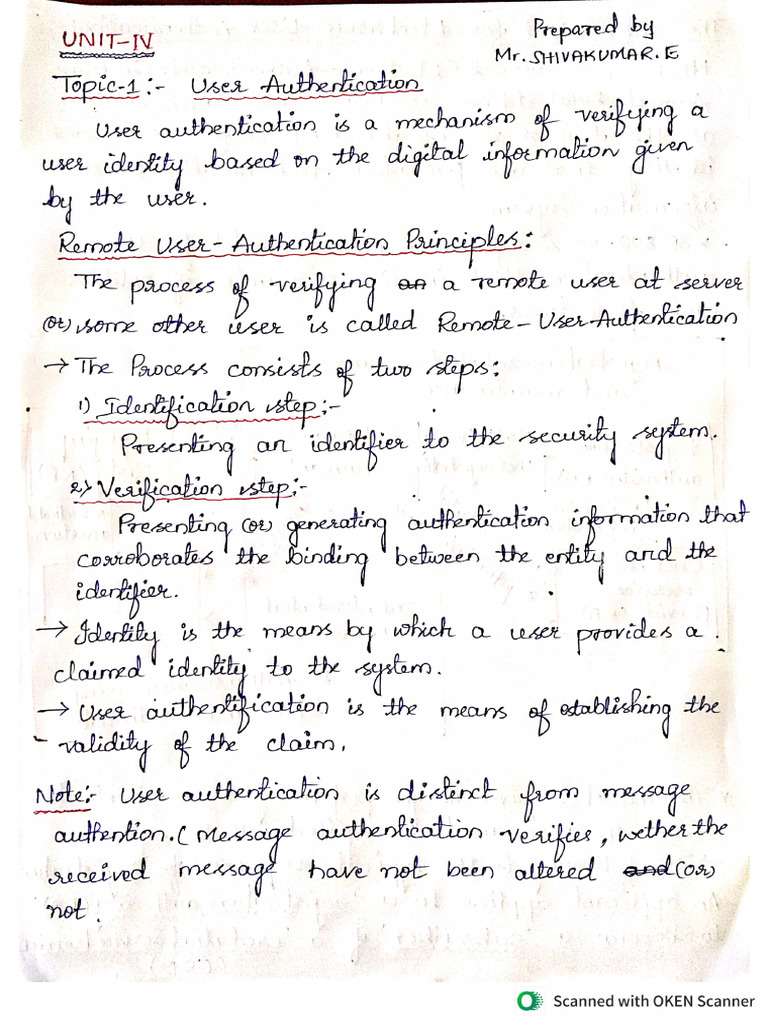 UNIT-IV
Prepared by
Mr. SHIVAKUMAR.E
Topic-1:- User Authentication
User authentication is a mechanism of verifying a
user identity based on the digital information given
by the user.
Remote User-Authentication Principles:
The process of verifying an a remote user at server
(or) some other user is called Remote-User-Authentication
→ The Process consists of two steps:
1) Identification step:-
Presenting an identifier to the security system.
2) Verification step:-
Presenting (or) generating authentication information that
corroborates the binding between the entity and the
identifier.
→ Identity is the means by which a user provides a
claimed identity to the system.
→ User authentification is the means of establishing the
validity of the claim.
Note:- User authentication is distinct from message
authention. ( Message authentication verifies, wether the
received message have not been altered and (or)
not.
Scanned with OKEN Scanner